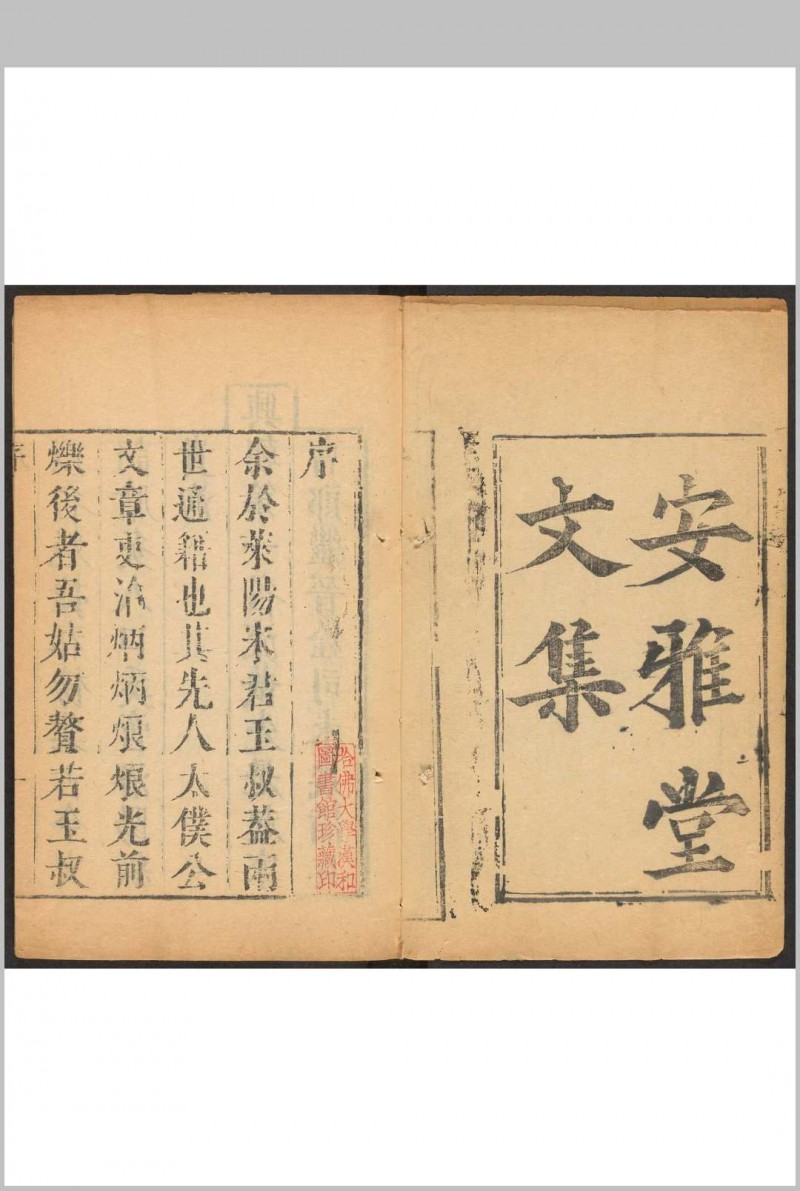 安雅堂
文集
序
余於萊陽宋君玉叔葢兩
世通籍也其先人太僕公
文章吏治炳炳烺烺光前
爍後者吾姑勿贅若玉叔
哈佛大學漢和
圖書館珍藏印
序